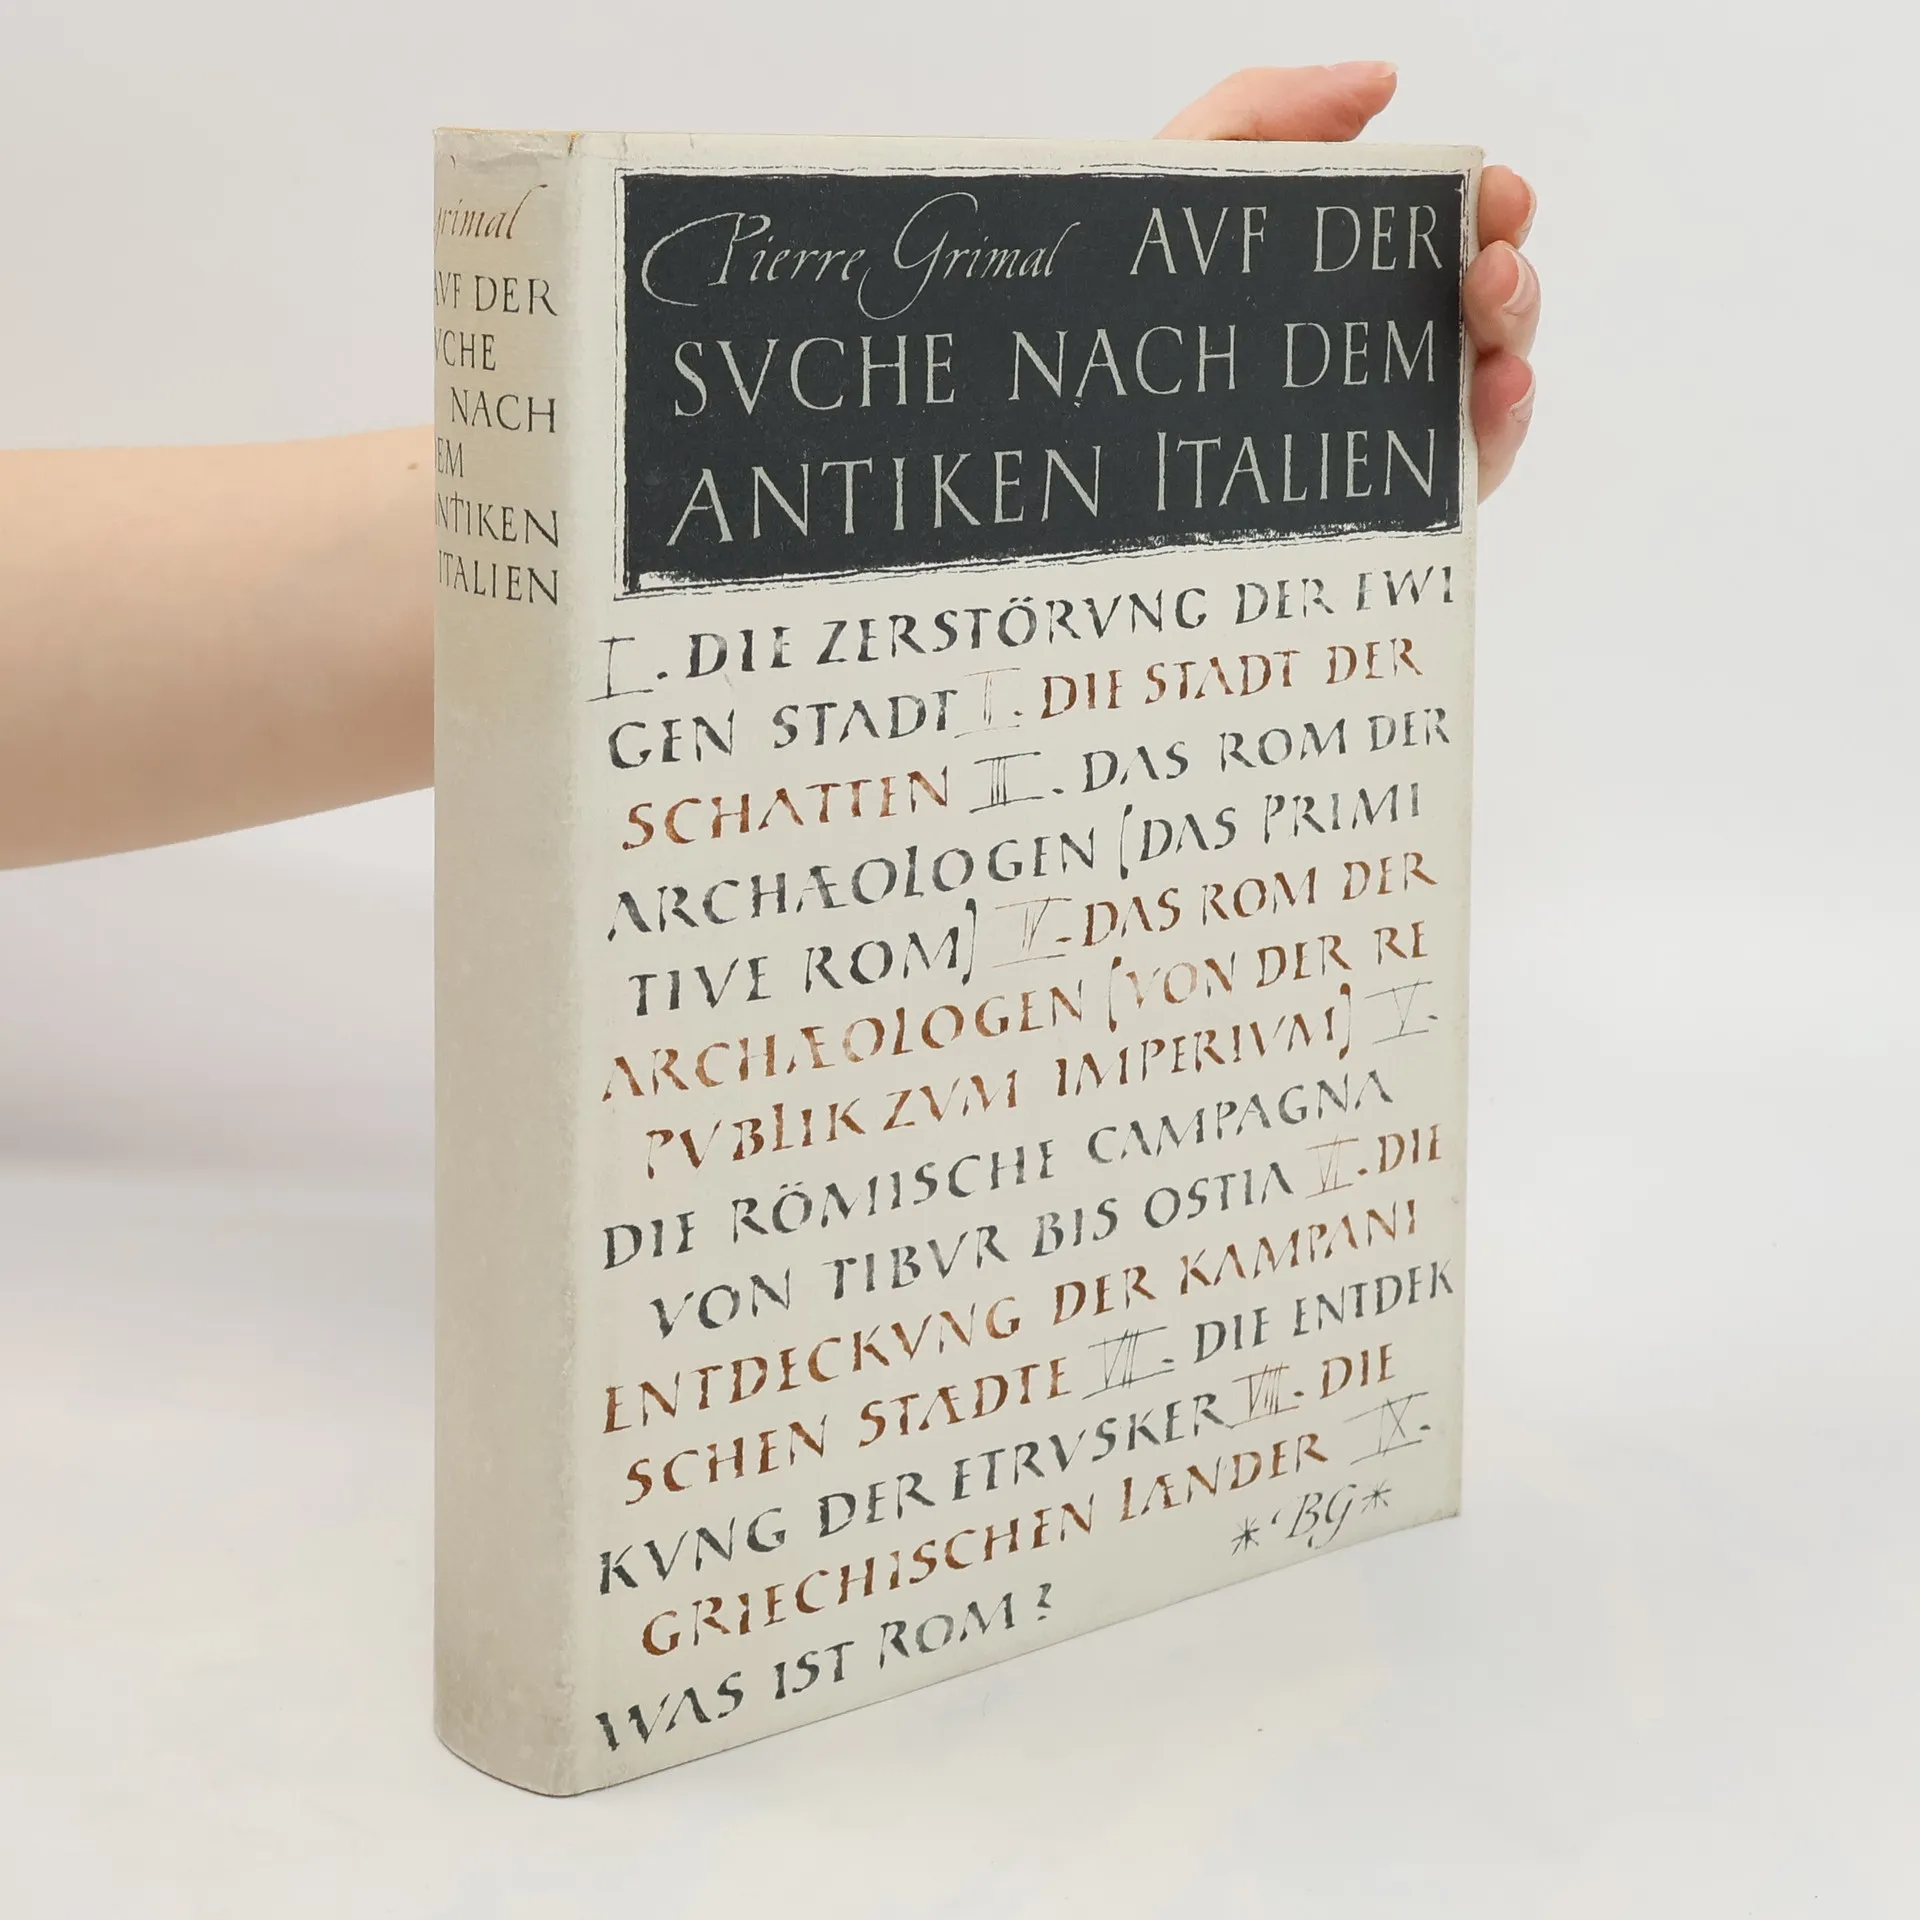 grimal
AVF DER
VCHE
NACH
EM
NTIKEN
ITALIEN
Pierre Grimal AVF DER
SVCHE NACH DEM
ANTIKEN ITALIEN
I. DIE ZERSTÖRVNG DER EWI
GEN STADT II. DIE STADT DER
SCHATTEN III. DAS ROM DER
ARCHÆOLOGEN (DAS PRIMI
TIVE ROM) IV. DAS ROM DER
ARCHÆOLOGEN (VON DER RE
PVBLIK ZVM IMPERIVM) V.
DIE RÖMISCHE CAMPAGNA
VON TIBVR BIS OSTIA VI. DIE
ENTDECKVNG DER KAMPANI
SCHEN STÆDTE VII. DIE ENTDEK
KVNG DER ETRVSKER VIII. DIE
GRIECHISCHEN LÆNDER IX.
WAS IST ROM? *'BG*